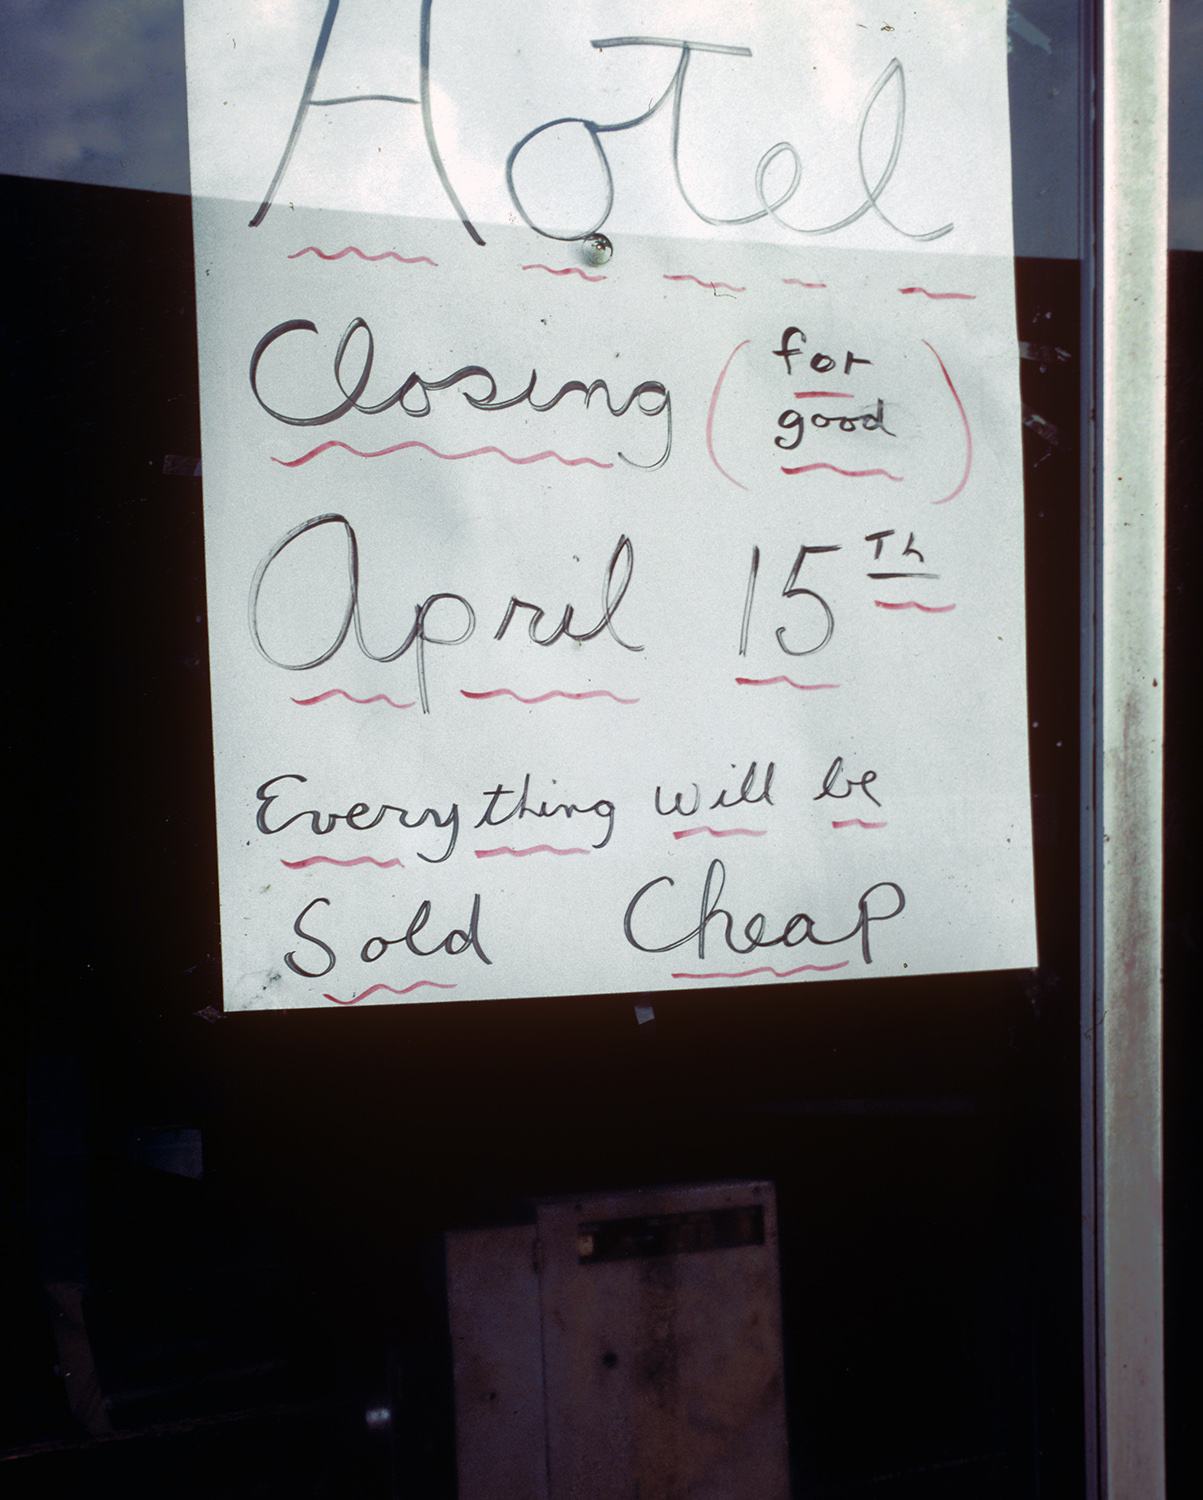 HoTel
Closing (for good)
April 15Th
Everything will be
Sold Cheap